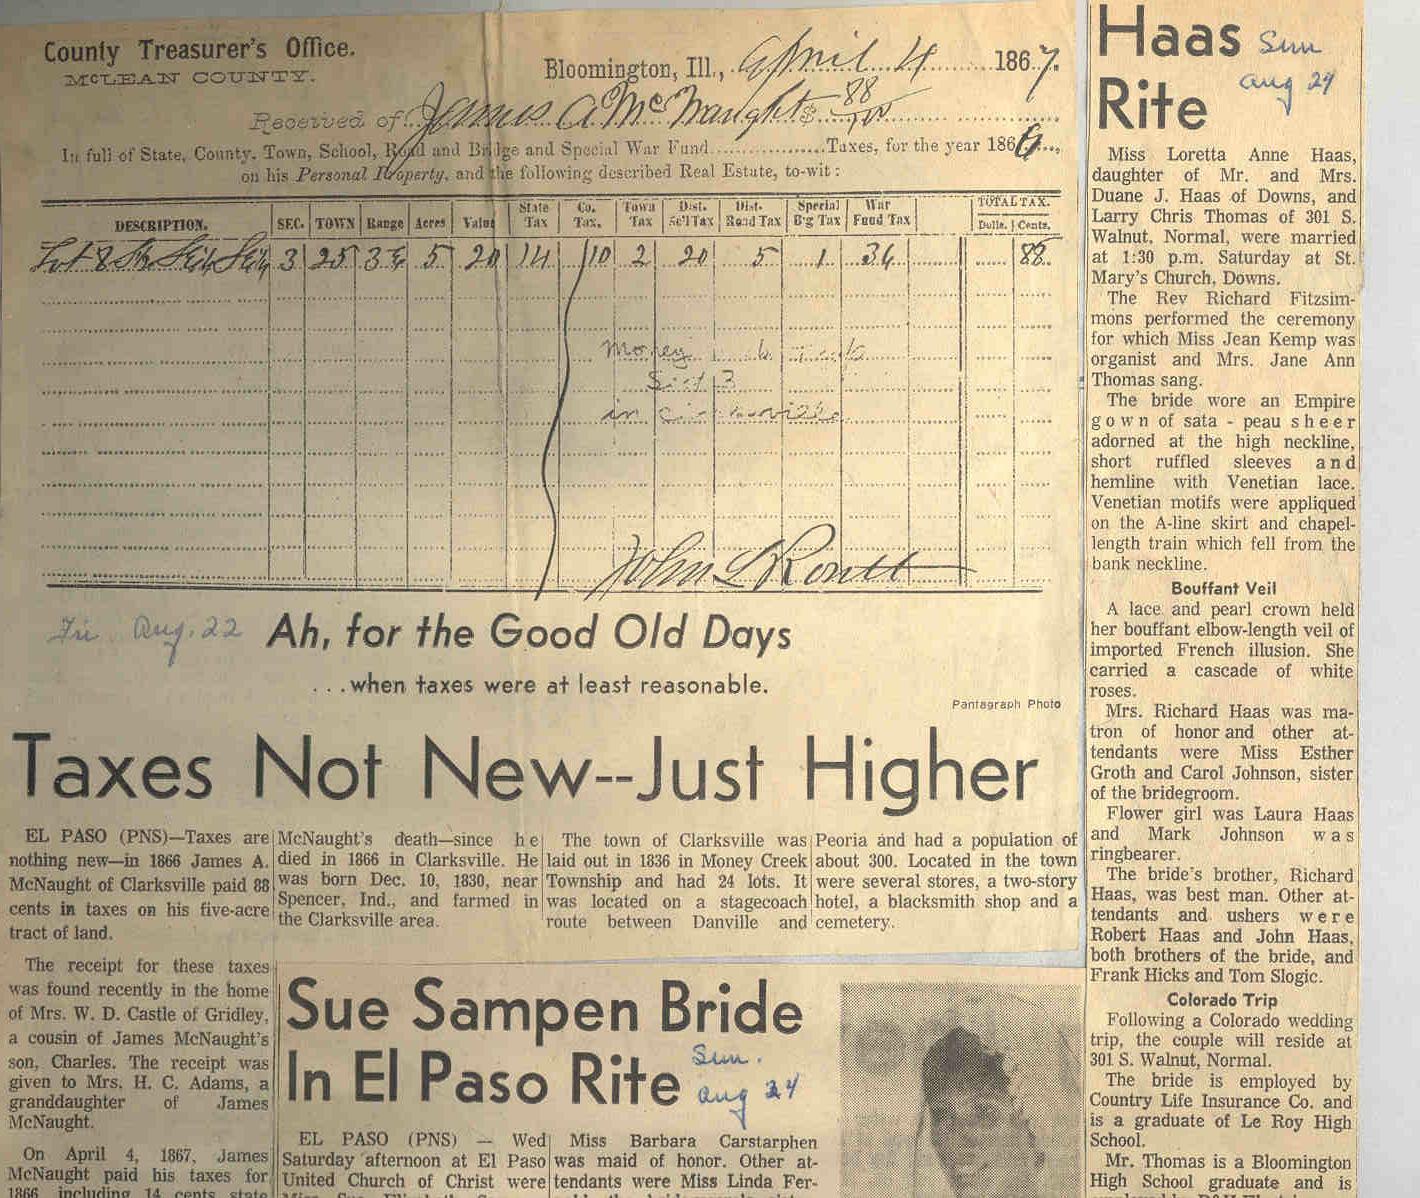 County Treasurer's Office.
McLEAN COUNTY.
Bloomington, Ill., April 4 1867.
Received of James A McNaught $ 88/100
In full of State, County, Town, School, Road and Bridge and Special War Fund Taxes, for the year 1866,
on his Personal Property, and the following described Real Estate, to-wit:
DESCRIPTION. SEC. TOWN Range Acres Value State Tax Co. Tax. Town Tax Dist. Sc'l Tax Dist. Road Tax Special B'g Tax War Fund Tax TOTAL TAX. Dolls. Cents.
Lot 8 3 25 3E 5 20 14 10 2 20 5 1 36 88
Money
Sect 3
in
John L Routt
Fri Aug. 22
Ah, for the Good Old Days
...when taxes were at least reasonable.
Pantagraph Photo
Taxes Not New--Just Higher
EL PASO (PNS)—Taxes are
nothing new—in 1866 James A.
McNaught of Clarksville paid 88
cents in taxes on his five-acre
tract of land.
The receipt for these taxes
was found recently in the home
of Mrs. W. D. Castle of Gridley,
a cousin of James McNaught's
son, Charles. The receipt was
given to Mrs. H. C. Adams, a
granddaughter of James
McNaught.
On April 4, 1867, James
McNaught paid his taxes for
1866, including 14 cents state
McNaught's death—since he
died in 1866 in Clarksville. He
was born Dec. 10, 1830, near
Spencer, Ind., and farmed in
the Clarksville area.
The town of Clarksville was
laid out in 1836 in Money Creek
Township and had 24 lots. It
was located on a stagecoach
route between Danville and
Peoria and had a population of
about 300. Located in the town
were several stores, a two-story
hotel, a blacksmith shop and a
cemetery.
Sue Sampen Bride
In El Paso Rite
Sun.
Aug 24
EL PASO (PNS) — Wed
Saturday afternoon at El Paso
United Church of Christ were
Miss Barbara Carstarphen
was maid of honor. Other at-
tendants were Miss Linda Fer-
Haas
Rite
Sun
Aug 24
Miss Loretta Anne Haas,
daughter of Mr. and Mrs.
Duane J. Haas of Downs, and
Larry Chris Thomas of 301 S.
Walnut, Normal, were married
at 1:30 p.m. Saturday at St.
Mary's Church, Downs.
The Rev Richard Fitzsim-
mons performed the ceremony
for which Miss Jean Kemp was
organist and Mrs. Jane Ann
Thomas sang.
The bride wore an Empire
gown of sata - peau sheer
adorned at the high neckline,
short ruffled sleeves and
hemline with Venetian lace.
Venetian motifs were appliqued
on the A-line skirt and chapel-
length train which fell from the
bank neckline.
Bouffant Veil
A lace and pearl crown held
her bouffant elbow-length veil of
imported French illusion. She
carried a cascade of white
roses.
Mrs. Richard Haas was ma-
tron of honor and other at-
tendants were Miss Esther
Groth and Carol Johnson, sister
of the bridegroom.
Flower girl was Laura Haas
and Mark Johnson was
ringbearer.
The bride's brother, Richard
Haas, was best man. Other at-
tendants and ushers were
Robert Haas and John Haas,
both brothers of the bride, and
Frank Hicks and Tom Slogic.
Colorado Trip
Following a Colorado wedding
trip, the couple will reside at
301 S. Walnut, Normal.
The bride is employed by
Country Life Insurance Co. and
is a graduate of Le Roy High
School.
Mr. Thomas is a Bloomington
High School graduate and is